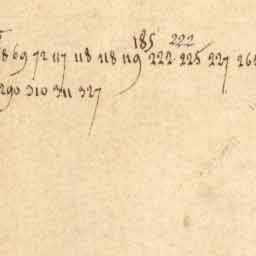 185 222
8 69 72 117 118 118 119 222 225 227 26
290 310 311 327